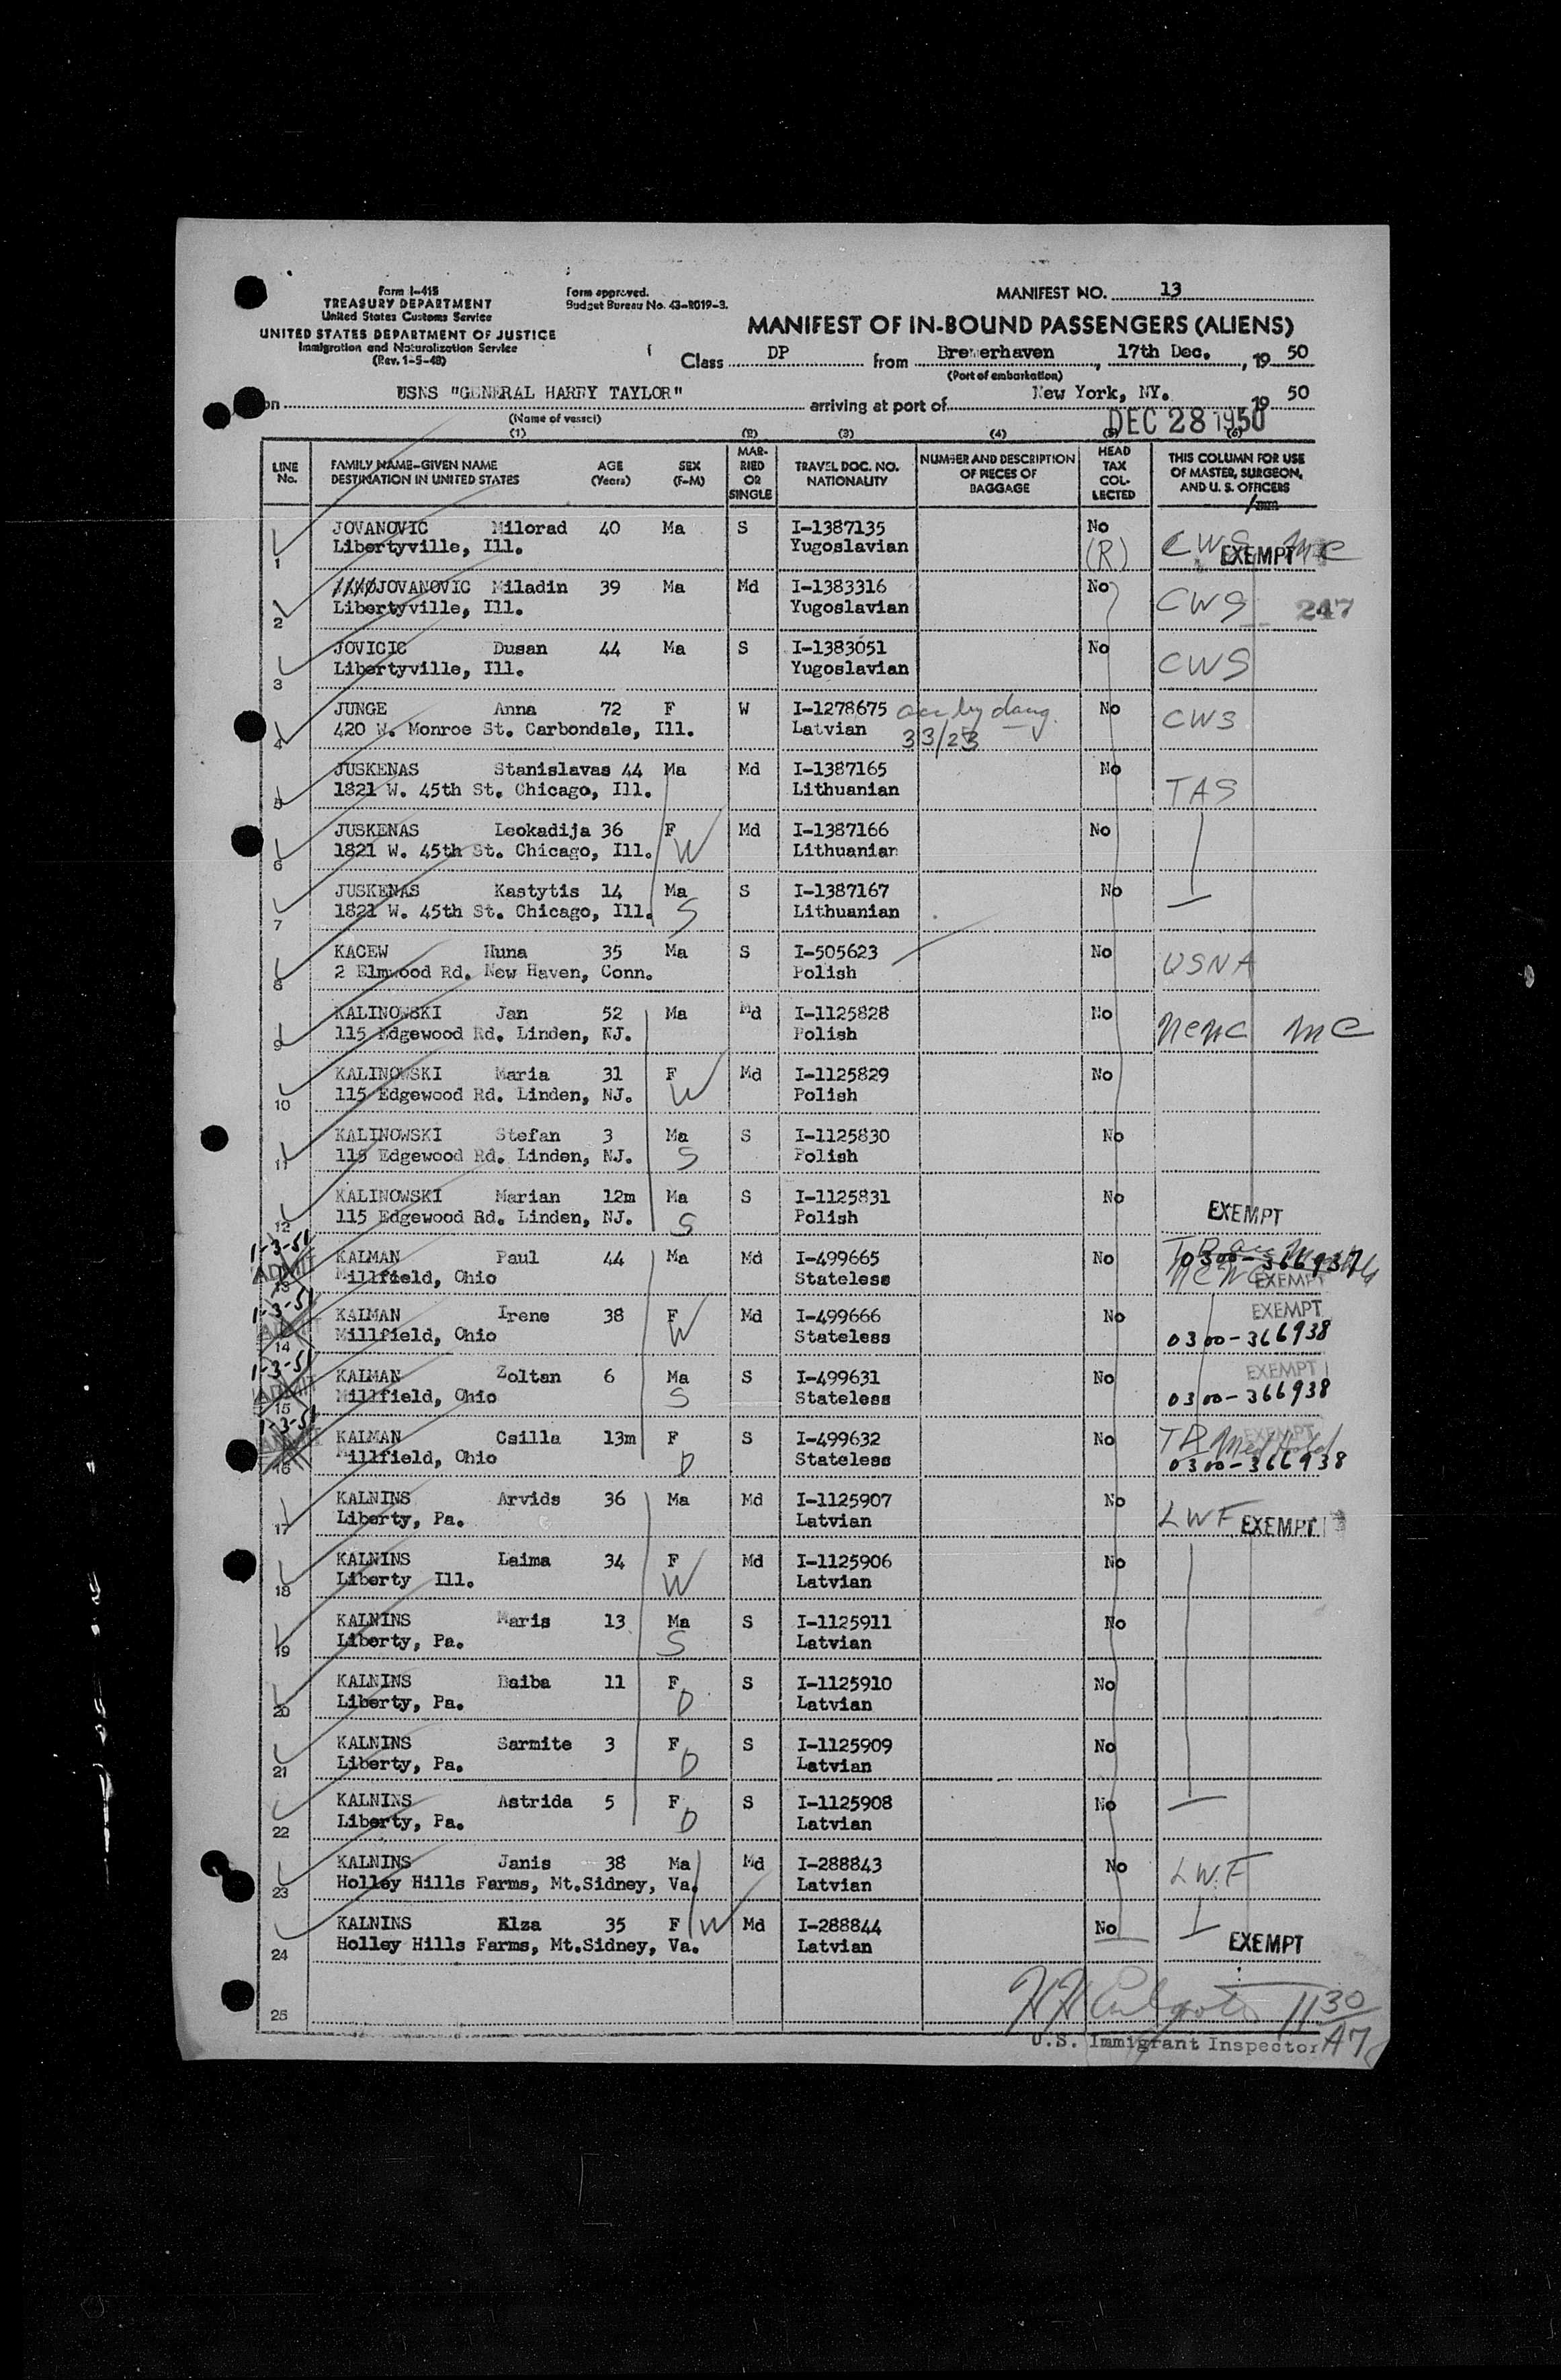 Form I-415
TREASURY DEPARTMENT
United States Customs Service
UNITED STATES DEPARTMENT OF JUSTICE
Immigration and Naturalization Service
(Rev. 1-5-48)
Form approved.
Budget Bureau No. 43-R019-3.
MANIFEST NO. 13
MANIFEST OF IN-BOUND PASSENGERS (ALIENS)
Class DP from Bremerhaven, 17th Dec., 19 50
(Port of embarkation)
on USNS "GENERAL HARRY TAYLOR" arriving at port of New York, NY. 19 50
(Name of vessel)
DEC 28 1950
(1) (2) (3) (4) (5) (6)
LINE No. FAMILY NAME-GIVEN NAME DESTINATION IN UNITED STATES AGE (Years) SEX (F-M) MARRIED OR SINGLE TRAVEL DOC. NO. NATIONALITY NUMBER AND DESCRIPTION OF PIECES OF BAGGAGE HEAD TAX COLLECTED THIS COLUMN FOR USE OF MASTER, SURGEON, AND U. S. OFFICERS
JOVANOVIC Milorad 40 Ma S I-1387135 No CWS
1 Libertyville, Ill. Yugoslavian (R) EXEMPT
JOVANOVIC Miladin 39 Ma Md I-1383316 No CWS 247
2 Libertyville, Ill. Yugoslavian
JOVICIC Dusan 44 Ma S I-1383051 No CWS
3 Libertyville, Ill. Yugoslavian
JUNGE Anna 72 F W I-1278675 acc by daug. No CWS
4 420 W. Monroe St. Carbondale, Ill. Latvian 33/23
JUSKENAS Stanislavas 44 Ma Md I-1387165 No TAS
5 1821 W. 45th St. Chicago, Ill. Lithuanian
JUSKENAS Leokadija 36 F W Md I-1387166 No
6 1821 W. 45th St. Chicago, Ill. Lithuanian
JUSKENAS Kastytis 14 Ma S S I-1387167 No
7 1821 W. 45th St. Chicago, Ill. Lithuanian
KACEW Huna 35 Ma S I-505623 No USNA
8 2 Elmwood Rd. New Haven, Conn. Polish
KALINOWSKI Jan 52 Ma Md I-1125828 No NCNC
9 115 Edgewood Rd. Linden, NJ. Polish
KALINOWSKI Maria 31 F W Md I-1125829 No
10 115 Edgewood Rd. Linden, NJ. Polish
KALINOWSKI Stefan 3 Ma S S I-1125830 No
11 115 Edgewood Rd. Linden, NJ. Polish
KALINOWSKI Marian 12m Ma S S I-1125831 No
12 115 Edgewood Rd. Linden, NJ. Polish EXEMPT
1-3-51 KALMAN Paul 44 Ma Md I-499665 No 0300-366937
13 ADMIT Millfield, Ohio Stateless EXEMPT
1-3-51 KALMAN Irene 38 F W Md I-499666 No EXEMPT
14 Millfield, Ohio Stateless 0300-366938
1-3-51 KALMAN Zoltan 6 Ma S S I-499631 No EXEMPT
15 ADMIT Millfield, Ohio Stateless 0300-366938
1-3-51 KALMAN Csilla 13m F D S I-499632 No Med Hold
16 Millfield, Ohio Stateless 0300-366938
KALNINS Arvids 36 Ma Md I-1125907 No LWF EXEMPT
17 Liberty, Pa. Latvian
KALNINS Laima 34 F W Md I-1125906 No
18 Liberty Ill. Latvian
KALNINS Maris 13 Ma S S I-1125911 No
19 Liberty, Pa. Latvian
KALNINS Baiba 11 F D S I-1125910 No
20 Liberty, Pa. Latvian
KALNINS Sarmite 3 F D S I-1125909 No
21 Liberty, Pa. Latvian
KALNINS Astrida 5 F D S I-1125908 No
22 Liberty, Pa. Latvian
KALNINS Janis 38 Ma Md I-288843 No LWF
23 Holley Hills Farms, Mt.Sidney, Va. Latvian
KALNINS Elza 35 F W Md I-288844 No
24 Holley Hills Farms, Mt.Sidney, Va. Latvian EXEMPT
25
11 30
U.S. Immigrant Inspector